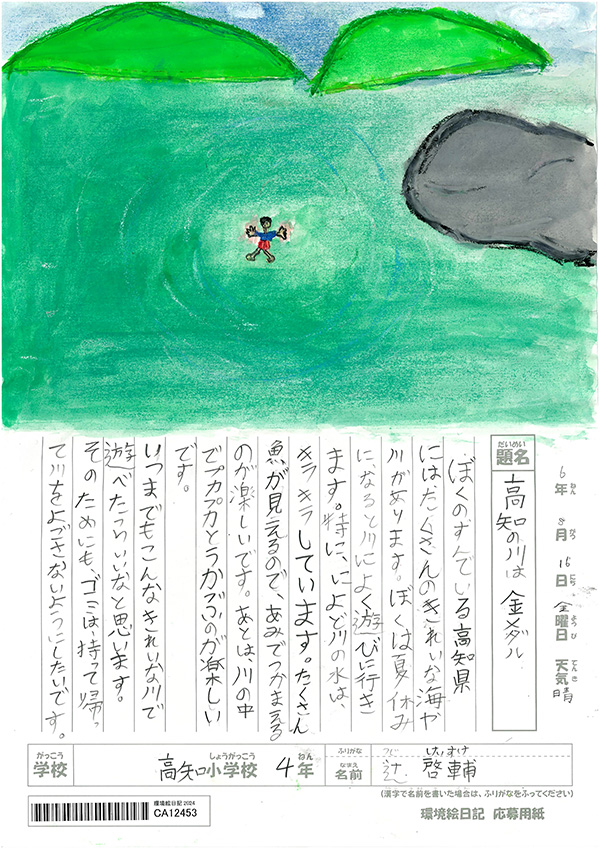 6年 8月 16日 金曜日 天気 晴
ねん がつ にち ようび てんき
だいめい
題名
高知の川は金メダル
ぼくのすんでいる高知県
にはたくさんのきれいな海や
川があります。ぼくは夏休み
になると川によく遊びに行き
ます。特に、によど川の水は、
キラキラしています。たくさん
魚が見えるので、あみでつかまえる
のが楽しいです。あとは、川の中
でプカプカとうかぶのが楽しい
です。
いつまでもこんなきれいな川で
遊べたらいいなと思います。
そのためにも、ゴミは、持って帰っ
て川をよごさないようにしたいです。
がっこう しょうがっこう ねん ふりがな つじ けいすけ
学校 高知小学校 4年 なまえ 名前 辻 啓輔
(漢字で名前を書いた場合は、ふりがなをふってください)
環境絵日記 2024
CA12453
環境絵日記 応募用紙